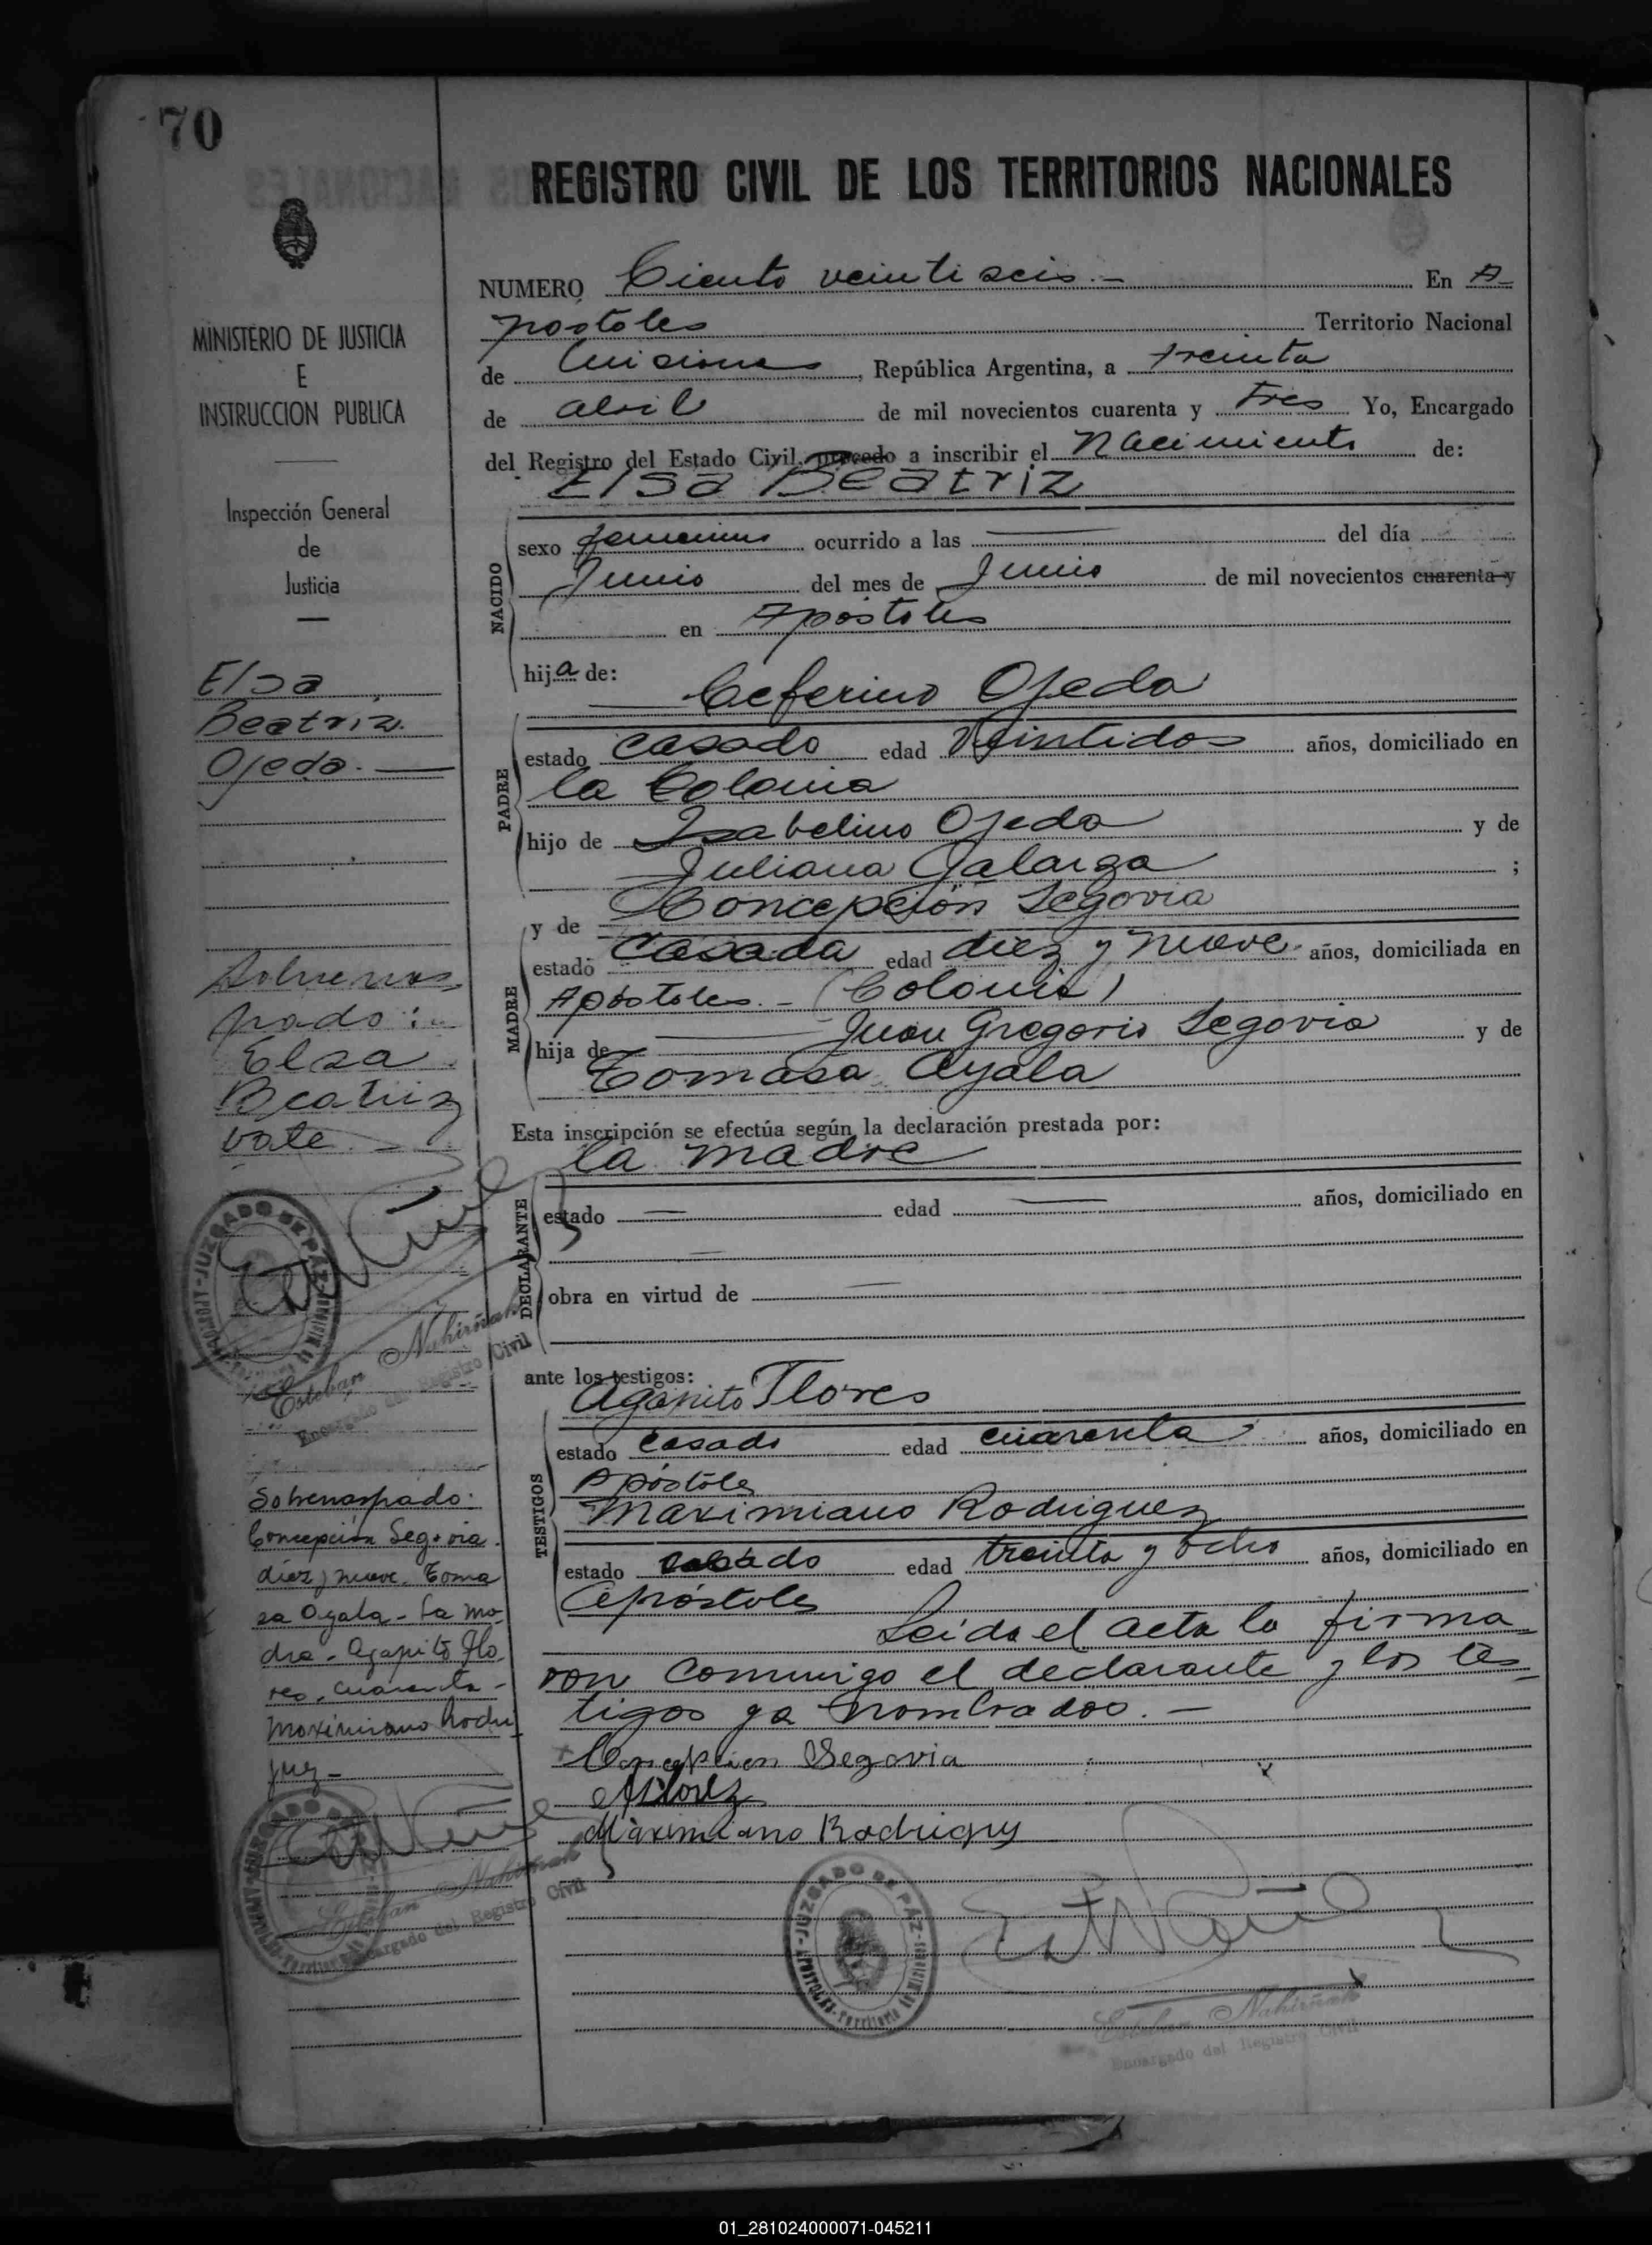 70
REGISTRO CIVIL DE LOS TERRITORIOS NACIONALES
MINISTERIO DE JUSTICIA
E
INSTRUCCION PUBLICA
Inspección General
de
Justicia
Elsa
Beatriz
Ojeda.—
Sobreras
pado:
Elsa
Beatriz
vale.—
JUZGADO DE PAZ
Esteban Nahirñak
Encargado del Registro Civil
Sobrerraspado:
Concepción Segovia.
diez y nueve. Toma
sa Ayala - La ma
dre - Agapito Flo
res, cuarenta -
Maximiano Rodri
guez -
Esteban Nahirñak
Encargado del Registro Civil
NUMERO Ciento veintiseis.— En A-
postoles Territorio Nacional
de Misiones, República Argentina, a treinta
de abril de mil novecientos cuarenta y tres Yo, Encargado
del Registro del Estado Civil, procedo a inscribir el Nacimiento de:
Elsa Beatriz
NACIDO
sexo femenino ocurrido a las — del día
Junio del mes de Junio de mil novecientos cuarenta y
en Apóstoles
hija de:
Ceferino Ojeda
PADRE
estado casado edad Veintidos años, domiciliado en
la Colonia
hijo de Isabelino Ojeda y de
Juliana Galarza ;
y de Concepción Segovia
MADRE
estado Casada edad diez y nueve años, domiciliada en
Apóstoles.- (Colonia)
hija de Juan Gregorio Segovia y de
Tomasa Ayala
Esta inscripción se efectúa según la declaración prestada por:
la madre
DECLARANTE
estado — edad — años, domiciliado en
—
obra en virtud de —
ante los testigos:
Agapito Flores
TESTIGOS
estado casado edad cuarenta años, domiciliado en
Apóstoles
Maximiano Rodriguez
estado casado edad treinta y ocho años, domiciliado en
Apóstoles
Leida el acta la firma-
ron conmigo el declarante y los tes-
tigos ya nombrados.—
Concepcion Segovia
AFlorez
Maximiano Rodriguez
JUZGADO DE PAZ - APOSTOLES - Territorio de Misiones
Esteban Nahirñak
Encargado del Registro Civil
01_281024000071-045211